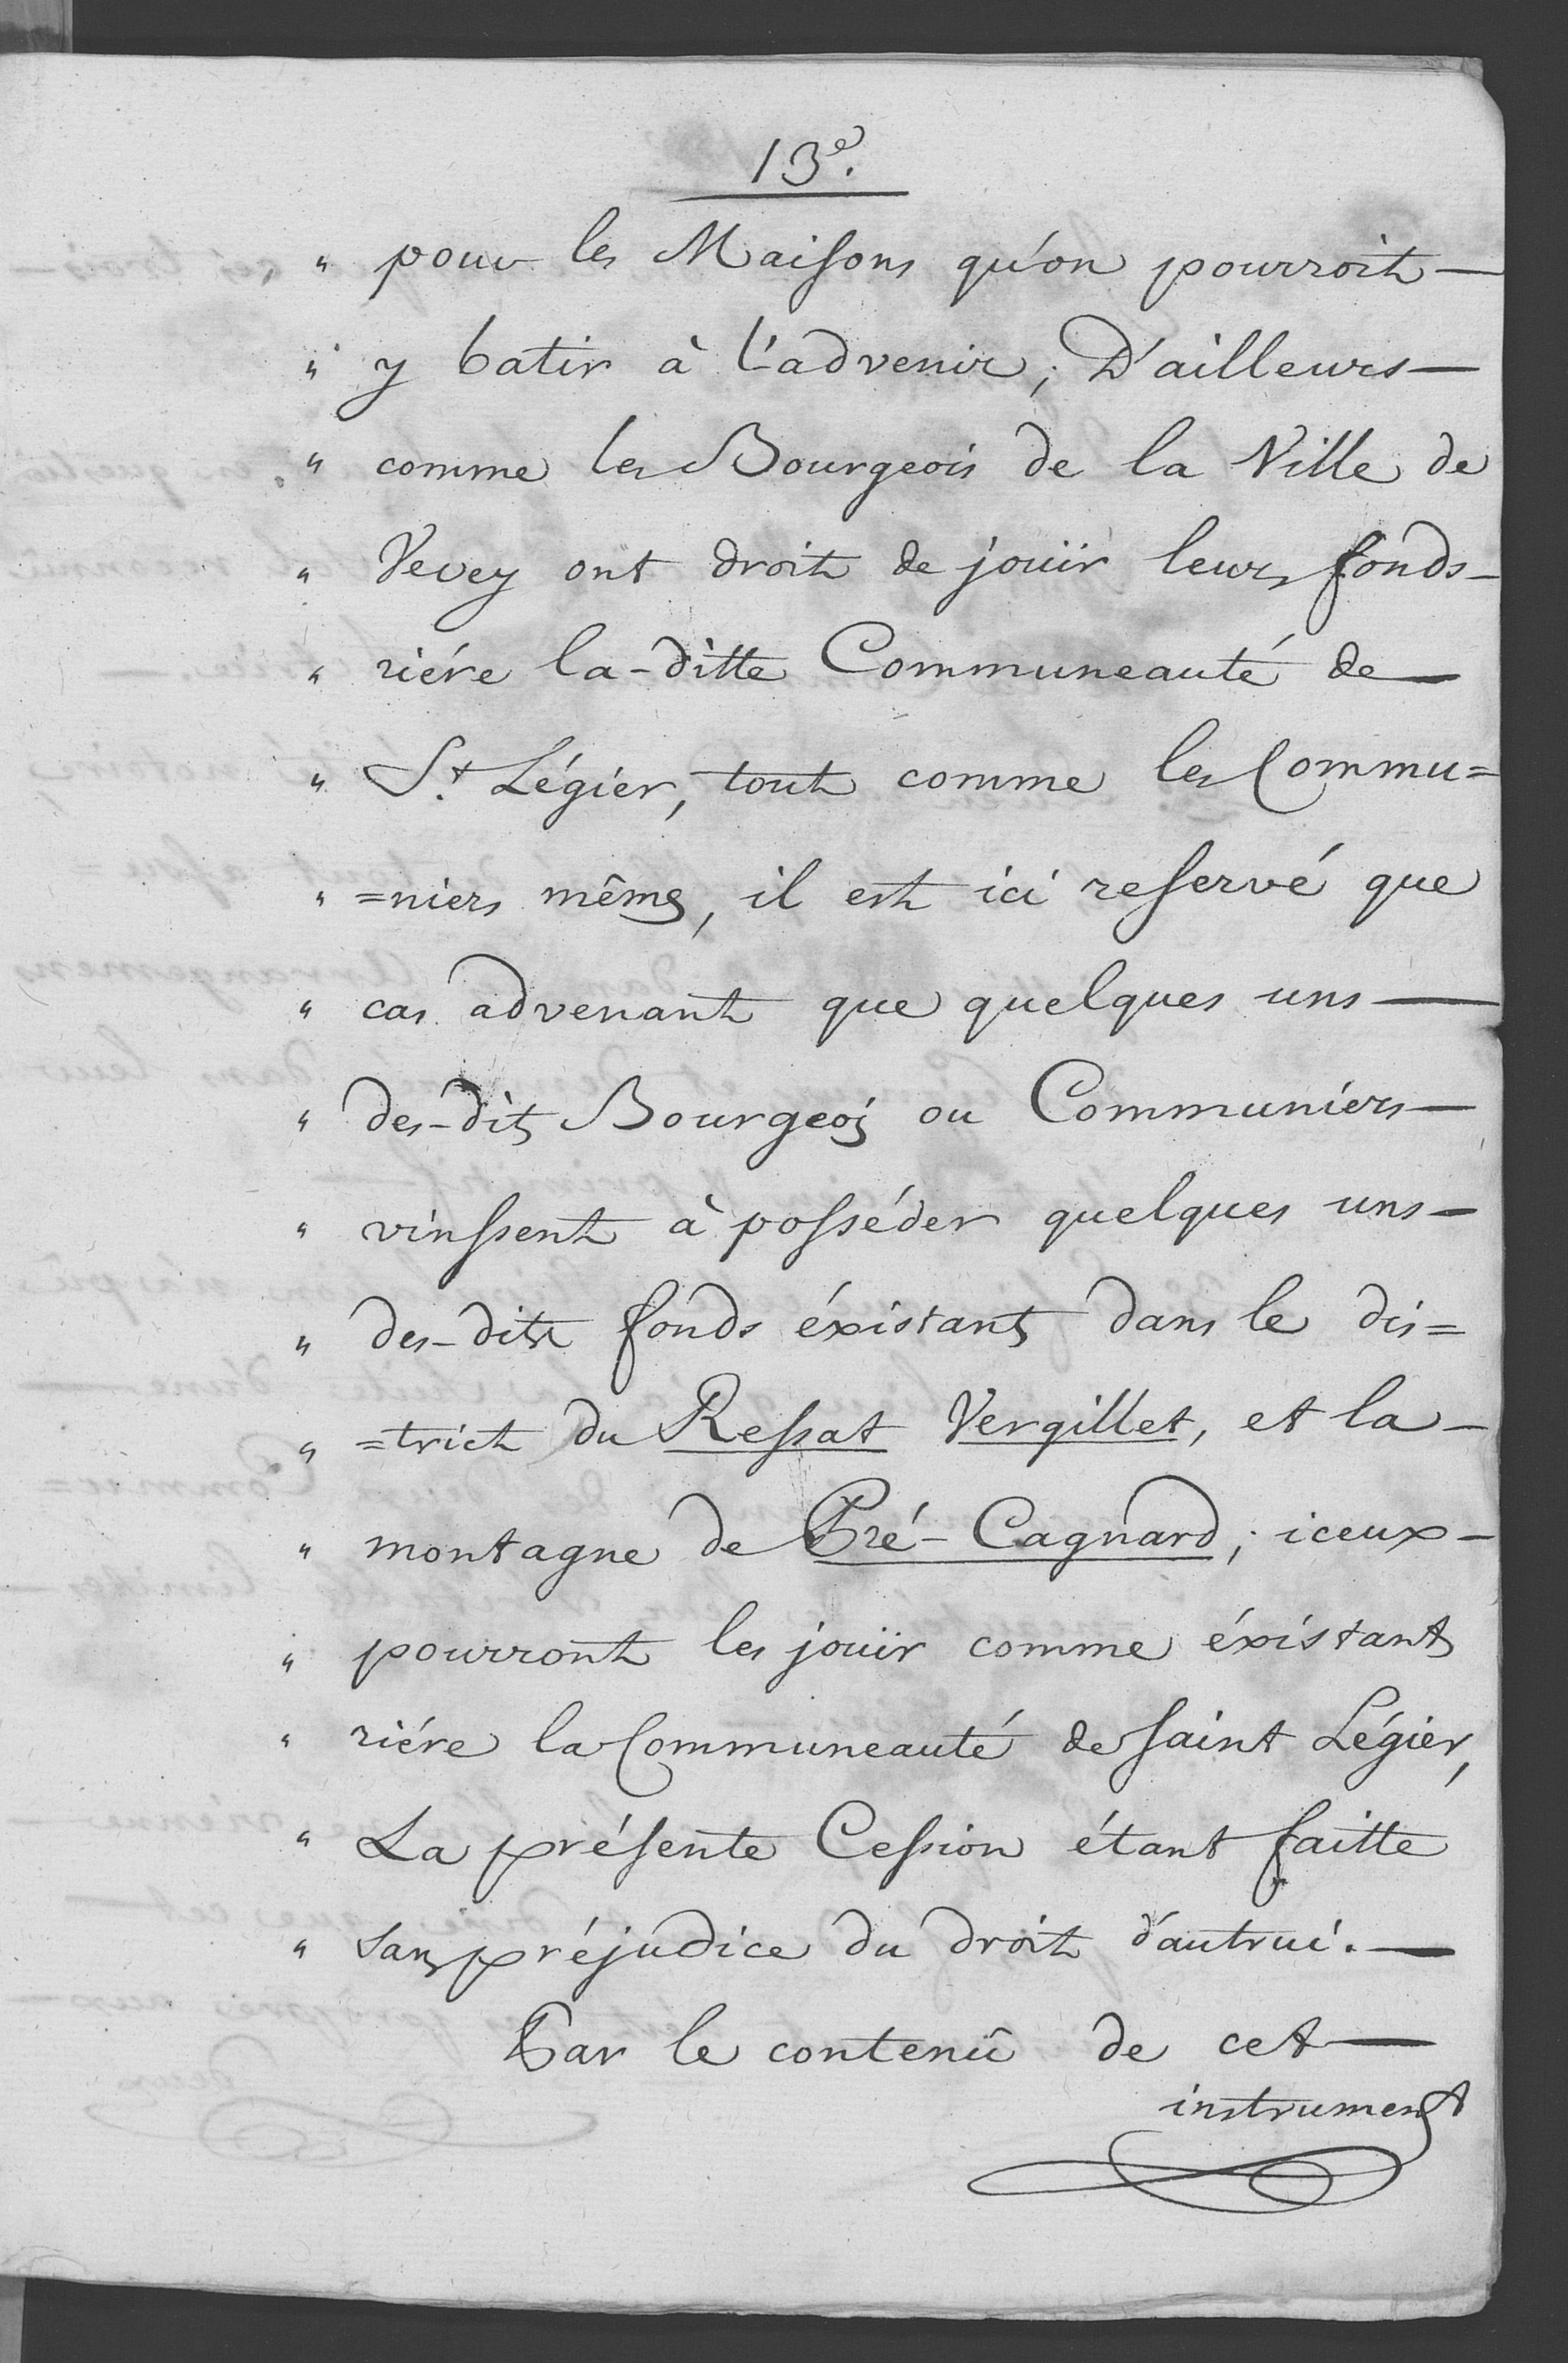 13e.
" pour les Maisons qu'on pourroit —
" y batir à l'advenir, D'ailleurs —
" comme les Bourgeois de la Ville de
" Vevey ont droit de jouïr leurs fonds —
" riére la-ditte Communeauté de —
" St. Légier, tout comme les Commu=
" =niers mêmes, il est ici reservé que
" cas advenant que quelques uns —
" des-dits Bourgeois ou Communiers —
" vinssent à posséder quelques uns —
" des-dits fonds éxistants dans le dis=
" =trict du Ressat Vergillet, et la —
" montagne de Pré-Cagnard; iceux —
" pourront les jouïr comme éxistants
" riére la Communeauté de Saint Légier,
" La présente Cession étant faitte
" sans préjudice du droit d'autrui. —
Par le contenû de cet —
instrument